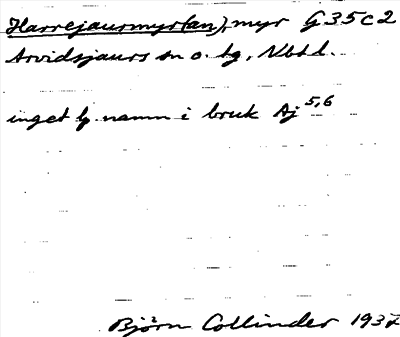 Harrejaurmyr(an), myr G 35 c 2
Arvidsjaurs sn o. tg, Nbtl.
inget lp. namn i bruk Aj 5,6
Björn Collinder 1937